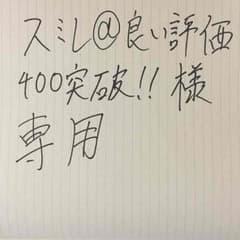 スミレ@良い評価
400突破!!様
専用